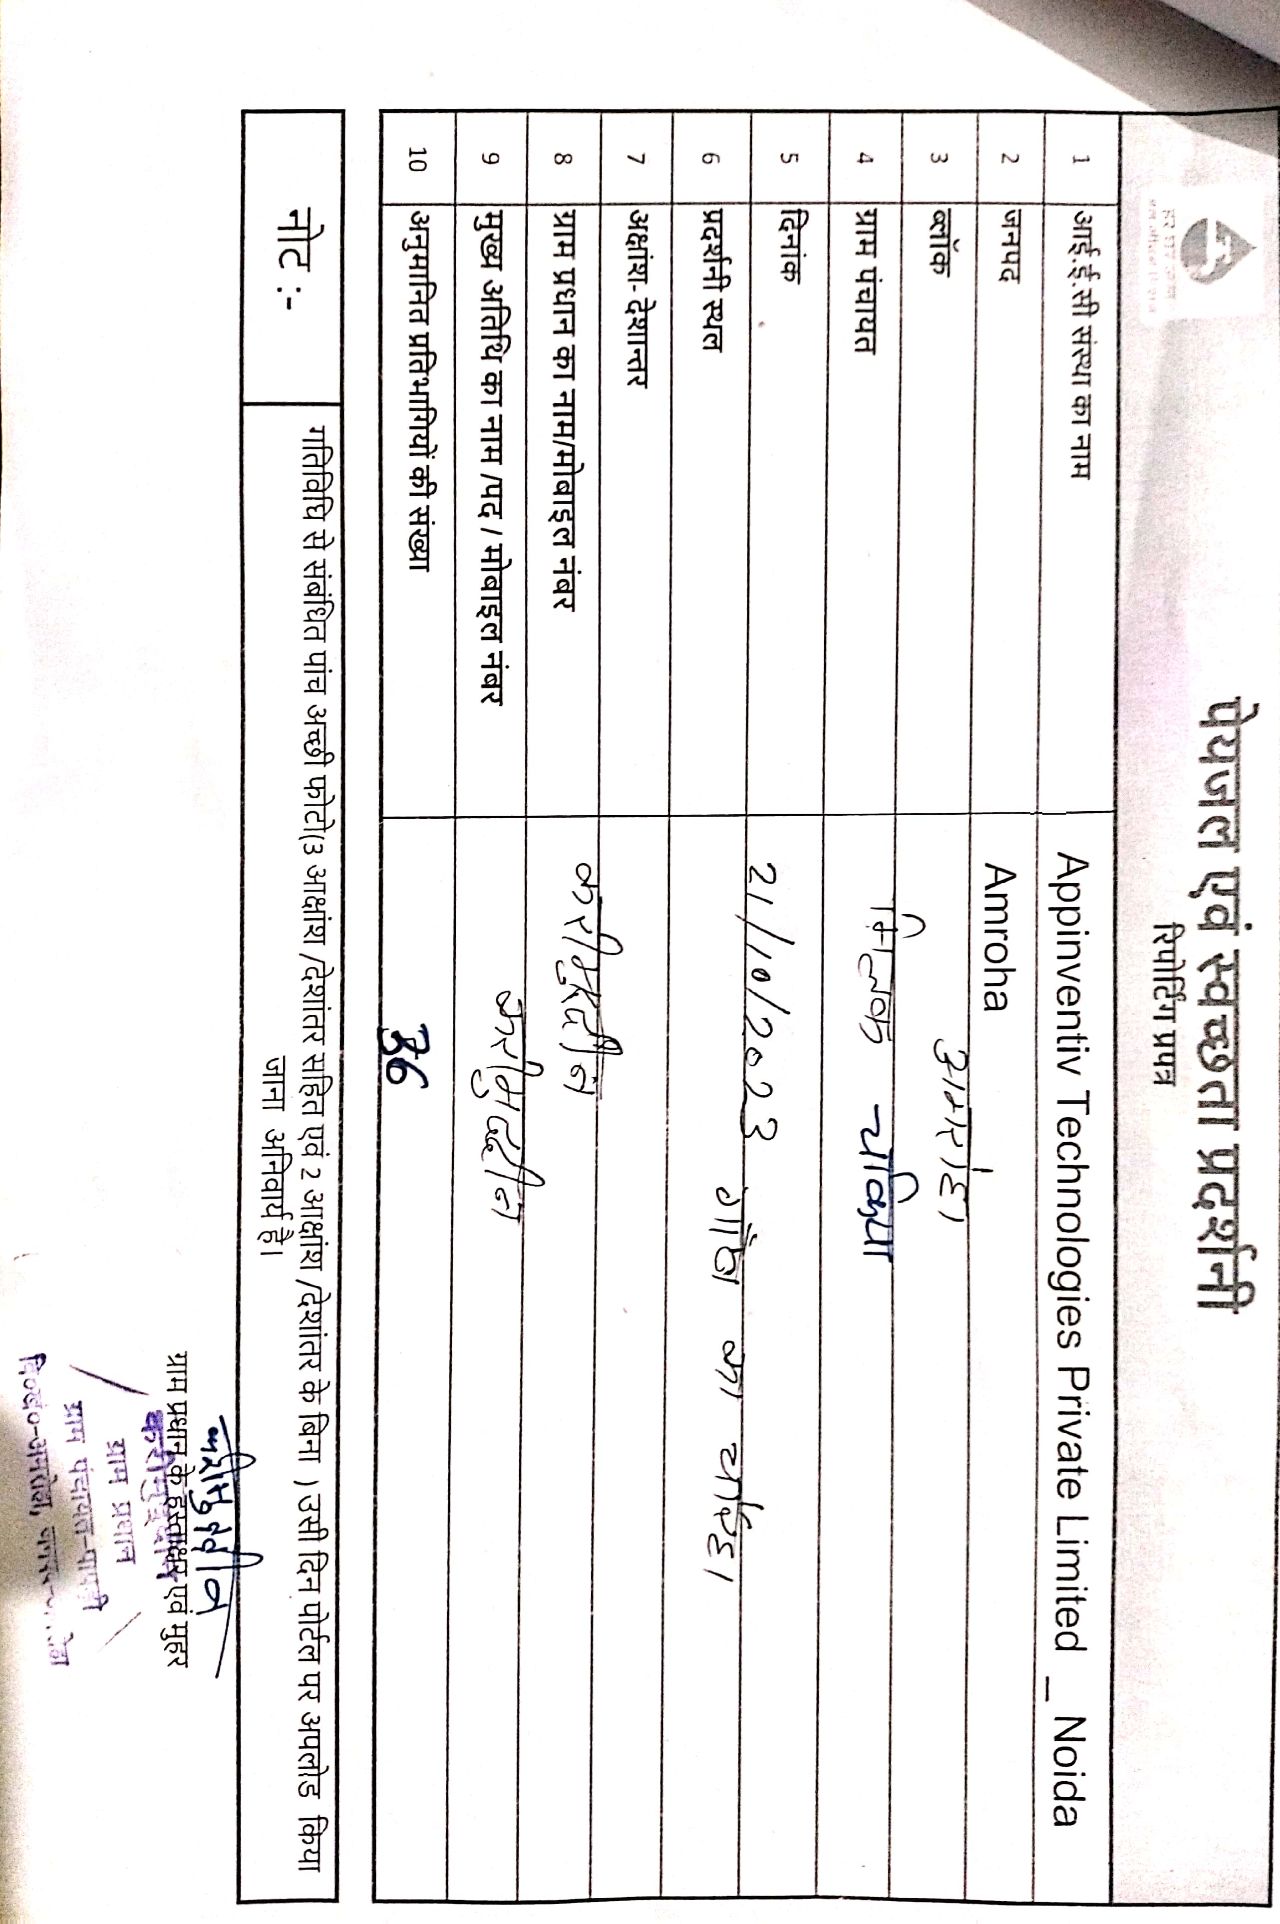 पेयजल एवं स्वच्छता प्रदर्शनी
रिपोर्टिंग प्रपत्र
1 आई.ई.सी संस्था का नाम Appinventiv Technologies Private Limited _ Noida
2 जनपद Amroha
3 ब्लॉक अमरोहा
4 ग्राम पंचायत मिलक
5 दिनांक 21/10/2023
6 प्रदर्शनी स्थल गाँव का चौराहा
7 अक्षांश- देशान्तर
8 ग्राम प्रधान का नाम/मोबाइल नंबर करीमुद्दीन
9 मुख्य अतिथि का नाम /पद / मोबाइल नंबर करीमुद्दीन
10 अनुमानित प्रतिभागियों की संख्या 36
नोट :- गतिविधि से संबंधित पांच अच्छी फोटो(3 आक्षांश /देशांतर सहित एवं 2 आक्षांश /देशांतर के बिना ) उसी दिन पोर्टल पर अपलोड किया
जाना अनिवार्य है।
करीमुद्दीन
ग्राम प्रधान के हस्ताक्षर एवं मुहर
करीमुद्दीन
ग्राम प्रधान
ग्राम पंचायत-